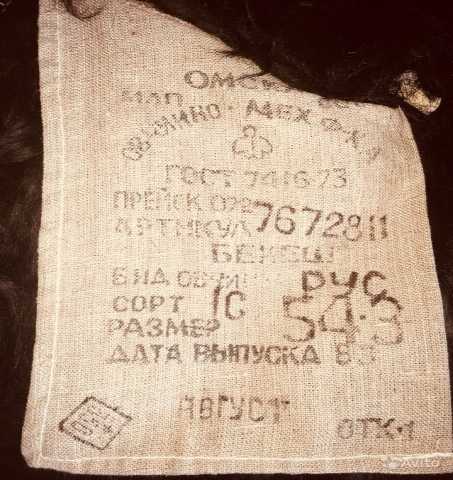 ОМСК
МЛП
ОВЧИННО-МЕХ.Ф-КА
ГОСТ 7416-73
ПРЕЙСК 072
АРТИКУЛ 7672811
БЕКЕШ
ВИД ОВЧИН РУС
СОРТ 1С
РАЗМЕР 54-3
ДАТА ВЫПУСКА 83
АВГУСТ
ОТК-1
Avito